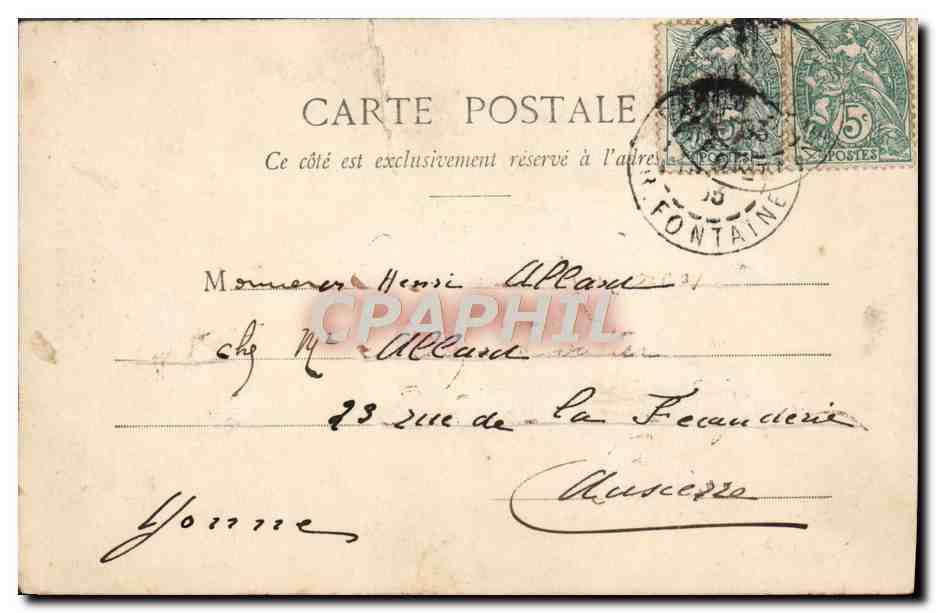 CARTE POSTALE
Ce côté est exclusivement réservé à l'adres
5c
POSTES
5
POSTES
R. FONTAINE
03
Monsieur Henri Allard
CPAPHIL
chez Mr Allard
23 rue de la Fecanderie
Auxerre
Yonne